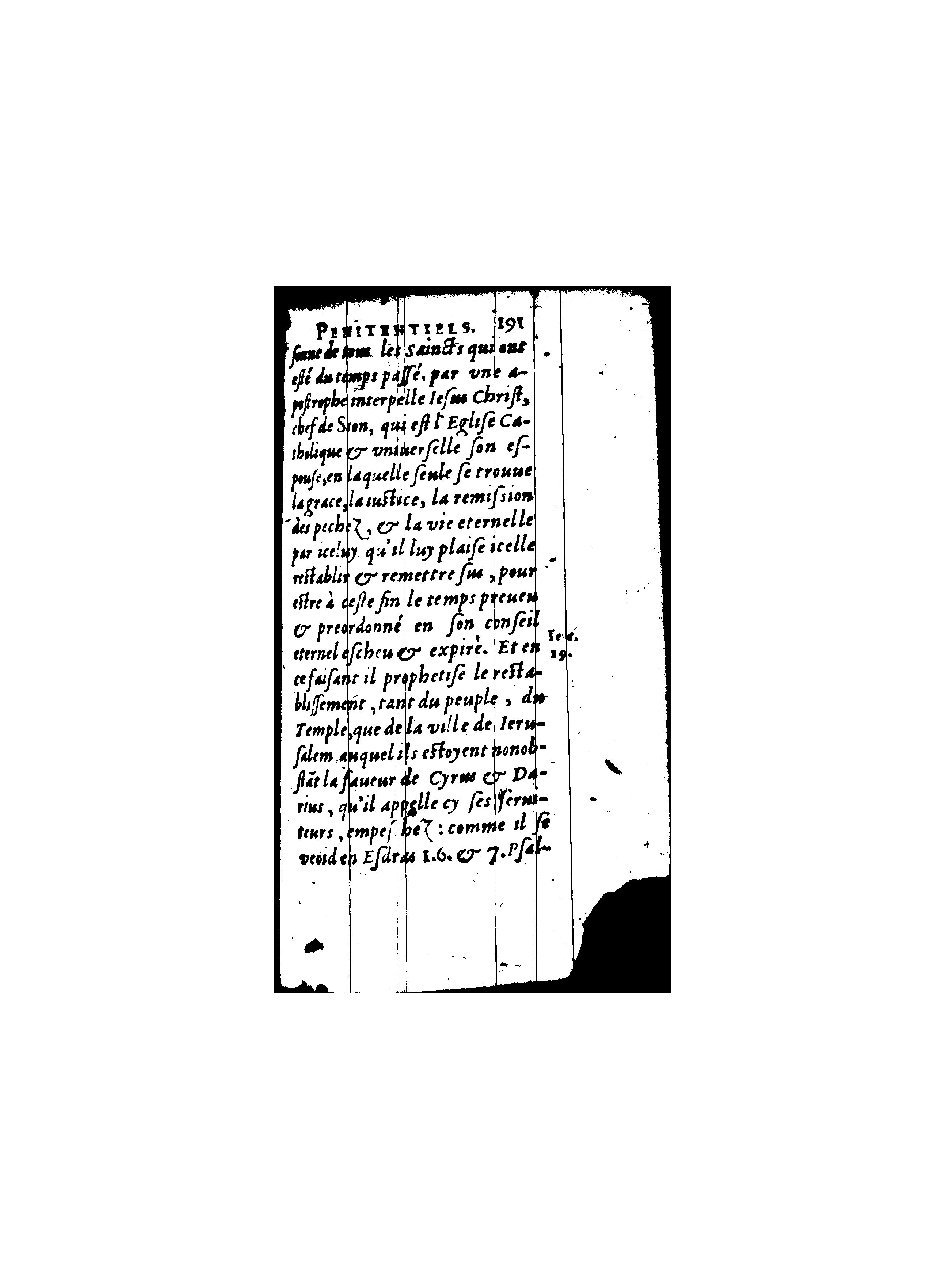 PENITENTIELS. 191
sonne de tous les Saincts qui ont
esté du temps passé, par vne a-
postrophe interpelle Iesus Christ,
chef de Sion, qui est l'Eglise Ca-
tholique & vniuerselle son es-
pouse, en laquelle seule se trouue
la grace, la iustice, la remission
des pechez, & la vie eternelle
par iceluy qu'il luy plaise icelle
restablir & remettre sus, pour
estre à ceste fin le temps preueu
& preordonné en son conseil
eternel escheu & expiré. Et en
ce faisant il prophetise le resta-
blissement, tant du peuple, du
Temple, que de la ville de Ieru-
salem auquel ils estoyent nonob-
stāt la faueur de Cyrus & Da-
rius, qu'il appelle cy ses serui-
teurs, empeschez : comme il se
veoid en Esdras 1.6. & 7. Psal-
19.